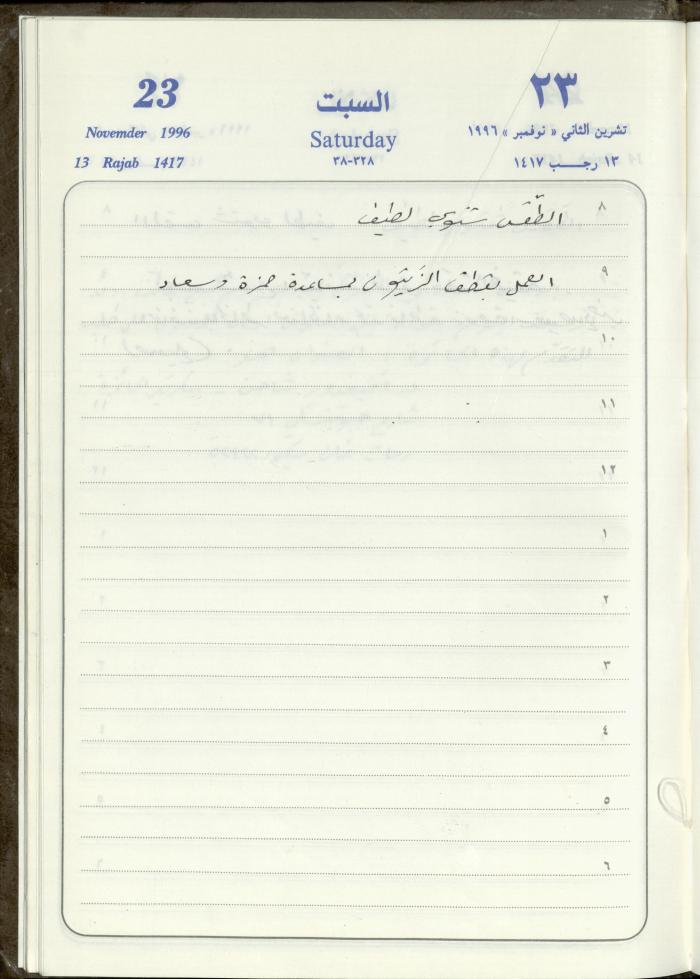 23 السبت ٢٣
Novemder 1996 Saturday تشرين الثاني « نوفمبر » ١٩٩٦
13 Rajab 1417 ٣٨-٣٢٨ ١٣ رجـــب ١٤١٧
٨ الطّقس شتوي لطيف
٩ العمل بقطف الزيتون بمساعدة حمزة وسعاد
١٠
١١
١٢
١
٢
٣
٤
٥
٦